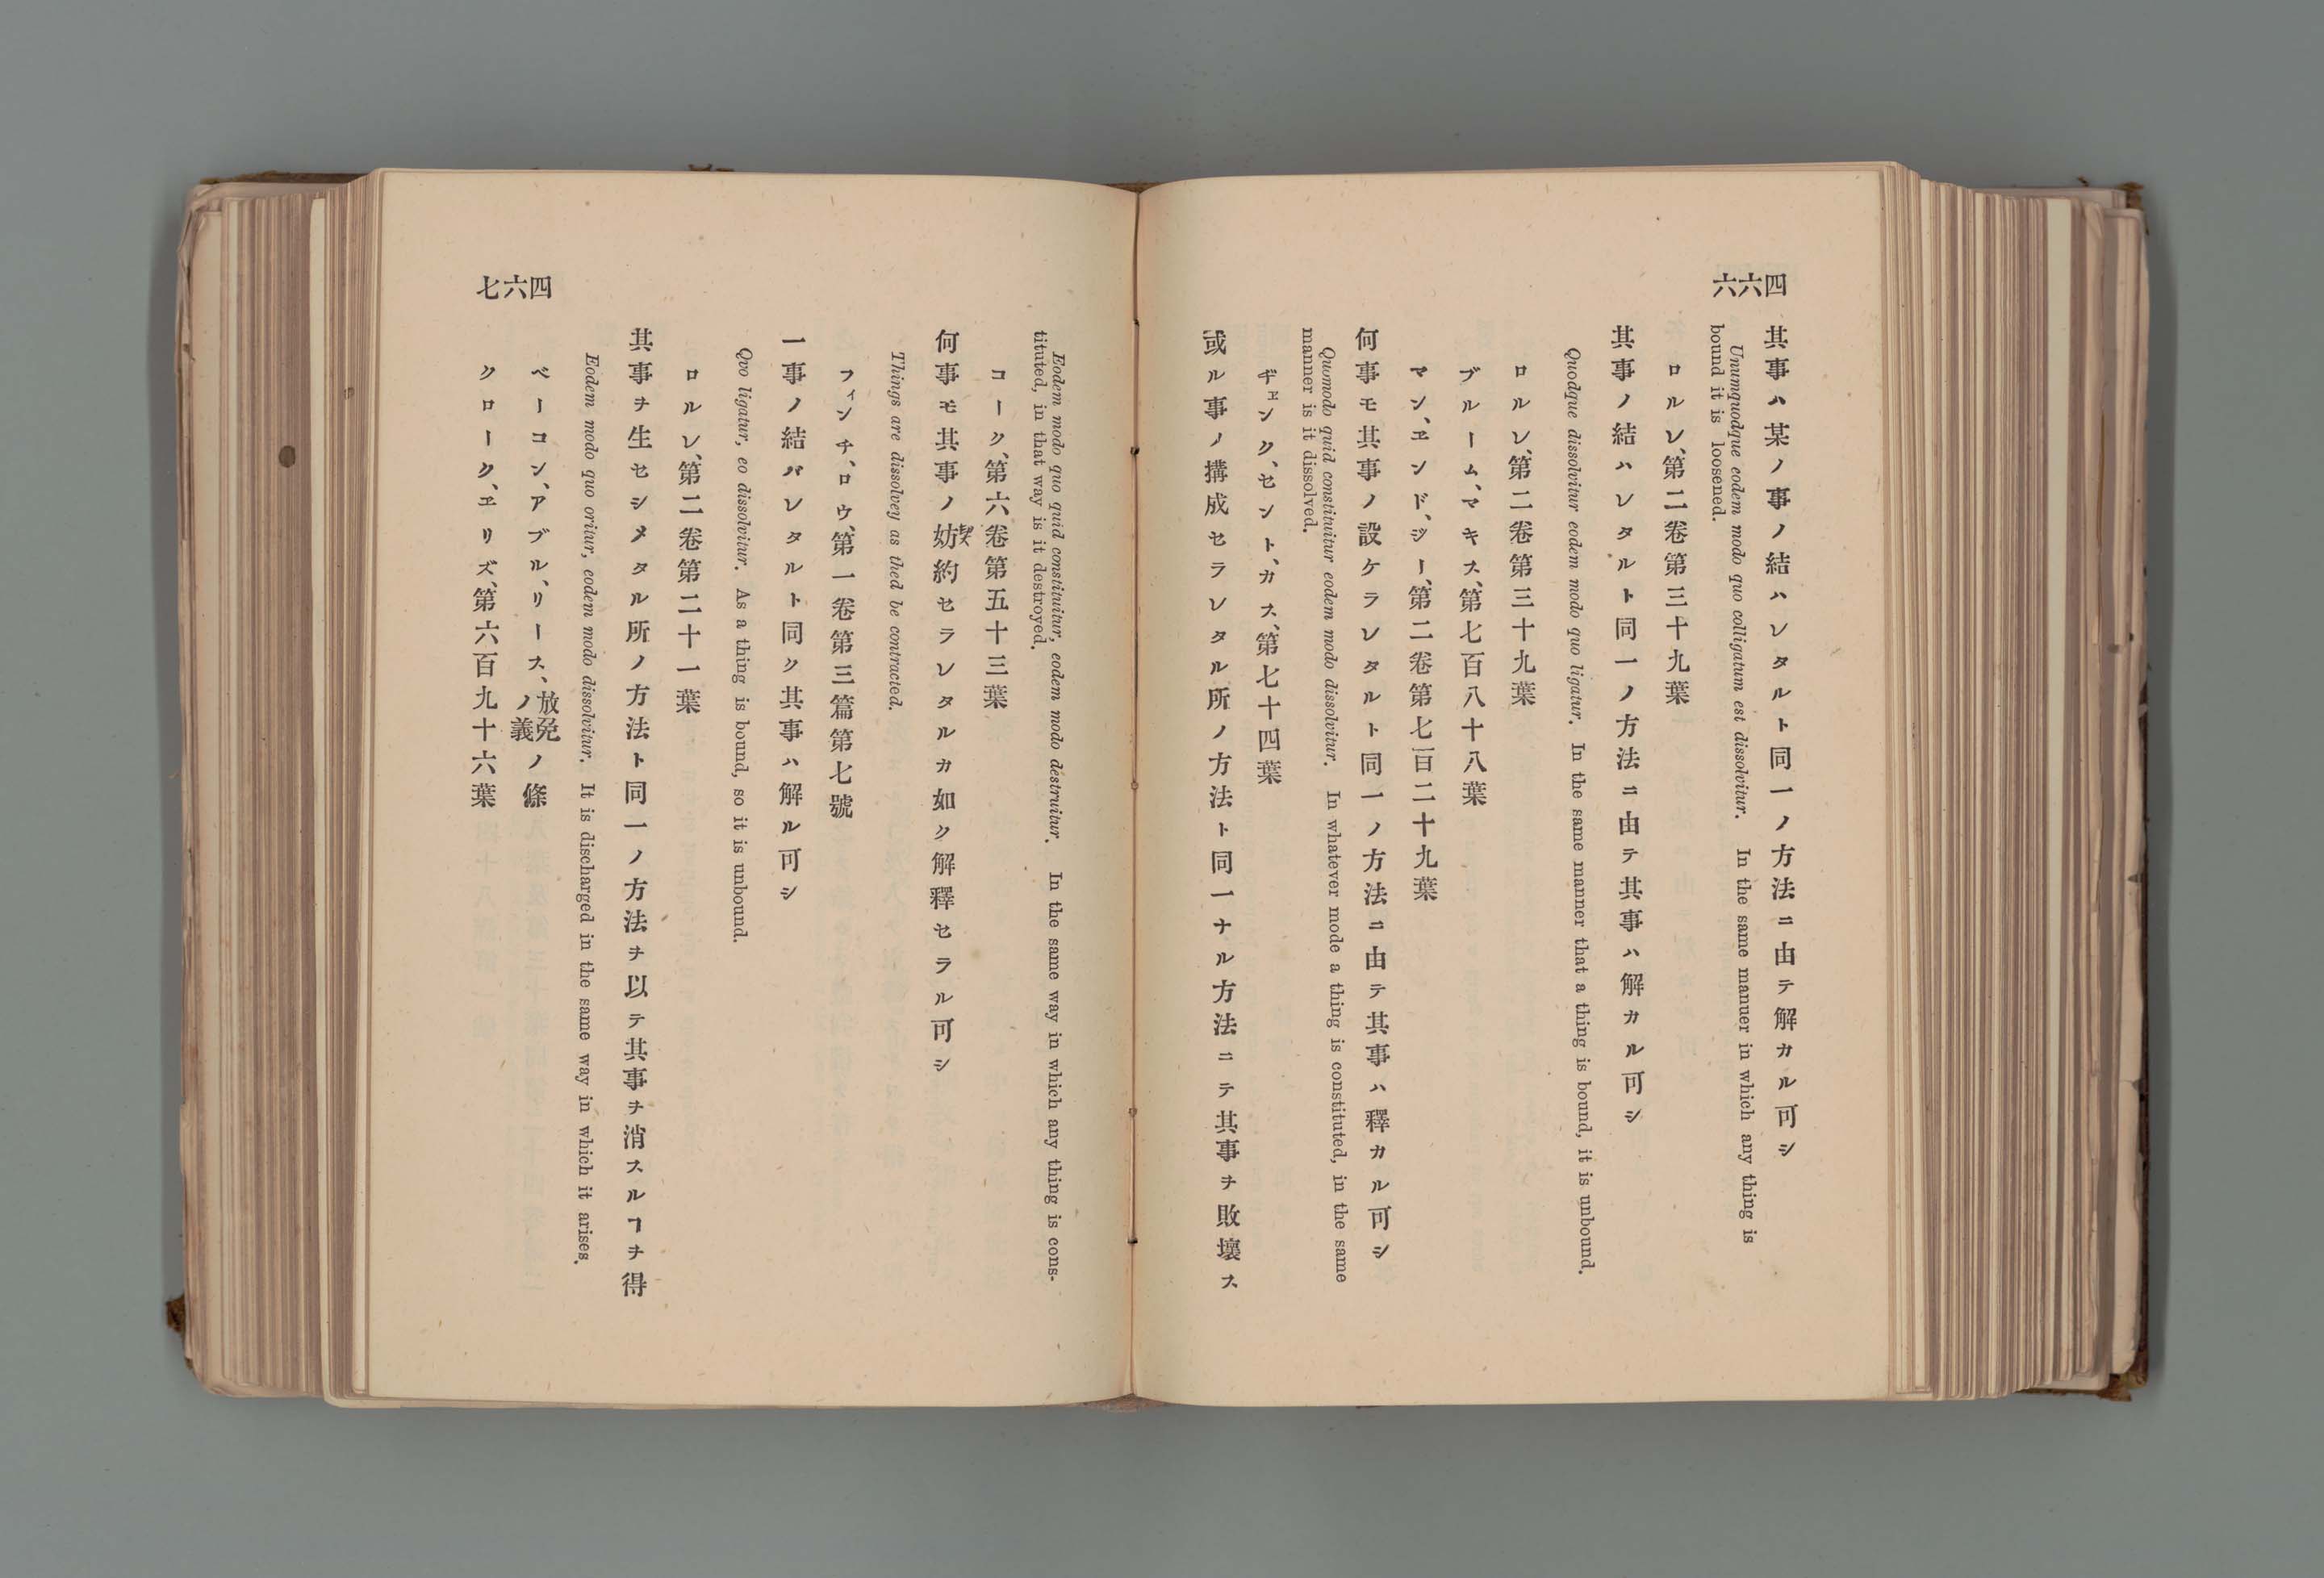 四六六
其事ハ某ノ事ノ結ハレタルト同一ノ方法ニ由テ解カル可シ
Unumquodque eodem modo quo colligatum est dissolvitur. In the same manuer in which any thing is
bound it is loosened.
ロルレ、第二卷第三十九葉
其事ノ結ハレタルト同一ノ方法ニ由テ其事ハ解カル可シ
Quodque dissolvitur eodem modo quo ligatur. In the same manner that a thing is bound, it is unbound.
ロルレ、第二卷第三十九葉
ブルーム、マキス、第七百八十八葉
マン、エンド、ジー、第二卷第七百二十九葉
何事モ其事ノ設ケラレタルト同一ノ方法ニ由テ其事ハ釋カル可シ
Quomodo quid constituitur eodem modo dissolvitur. In whatever mode a thing is constituted, in the same
manner is it dissolved.
ヂエンク、セント、カス、第七十四葉
或ル事ノ搆成セラレタル所ノ方法ト同一ナル方法ニテ其事ヲ敗壞ス
Eodem modo quo quid constituitur, eodem modo destruitur. In the same way in which any thing is cons-
tituted, in that way is it destroyed.
コーク、第六卷第五十三葉
何事モ其事ノ妨約セラレタルカ如ク解釋セラル可シ
Things are dissolvey as thed be contracted.
フィンチ、ロウ、第一卷第三篇第七號
一事ノ結バレタルト同ク其事ハ解ル可シ
Qvo ligatur, eo dissolvitur. As a thing is bound, so it is unbound.
ロルレ、第二卷第二十一葉
其事ヲ生セシメタル所ノ方法ト同一ノ方法ヲ以テ其事ヲ消スルヿヲ得
Eodem modo quo oritur, eodem modo dissolvitur. It is discharged in the same way in which it arises.
ベーコン、アブル、リース、放免ノ義ノ條
クローク、エリズ、第六百九十六葉
四六七